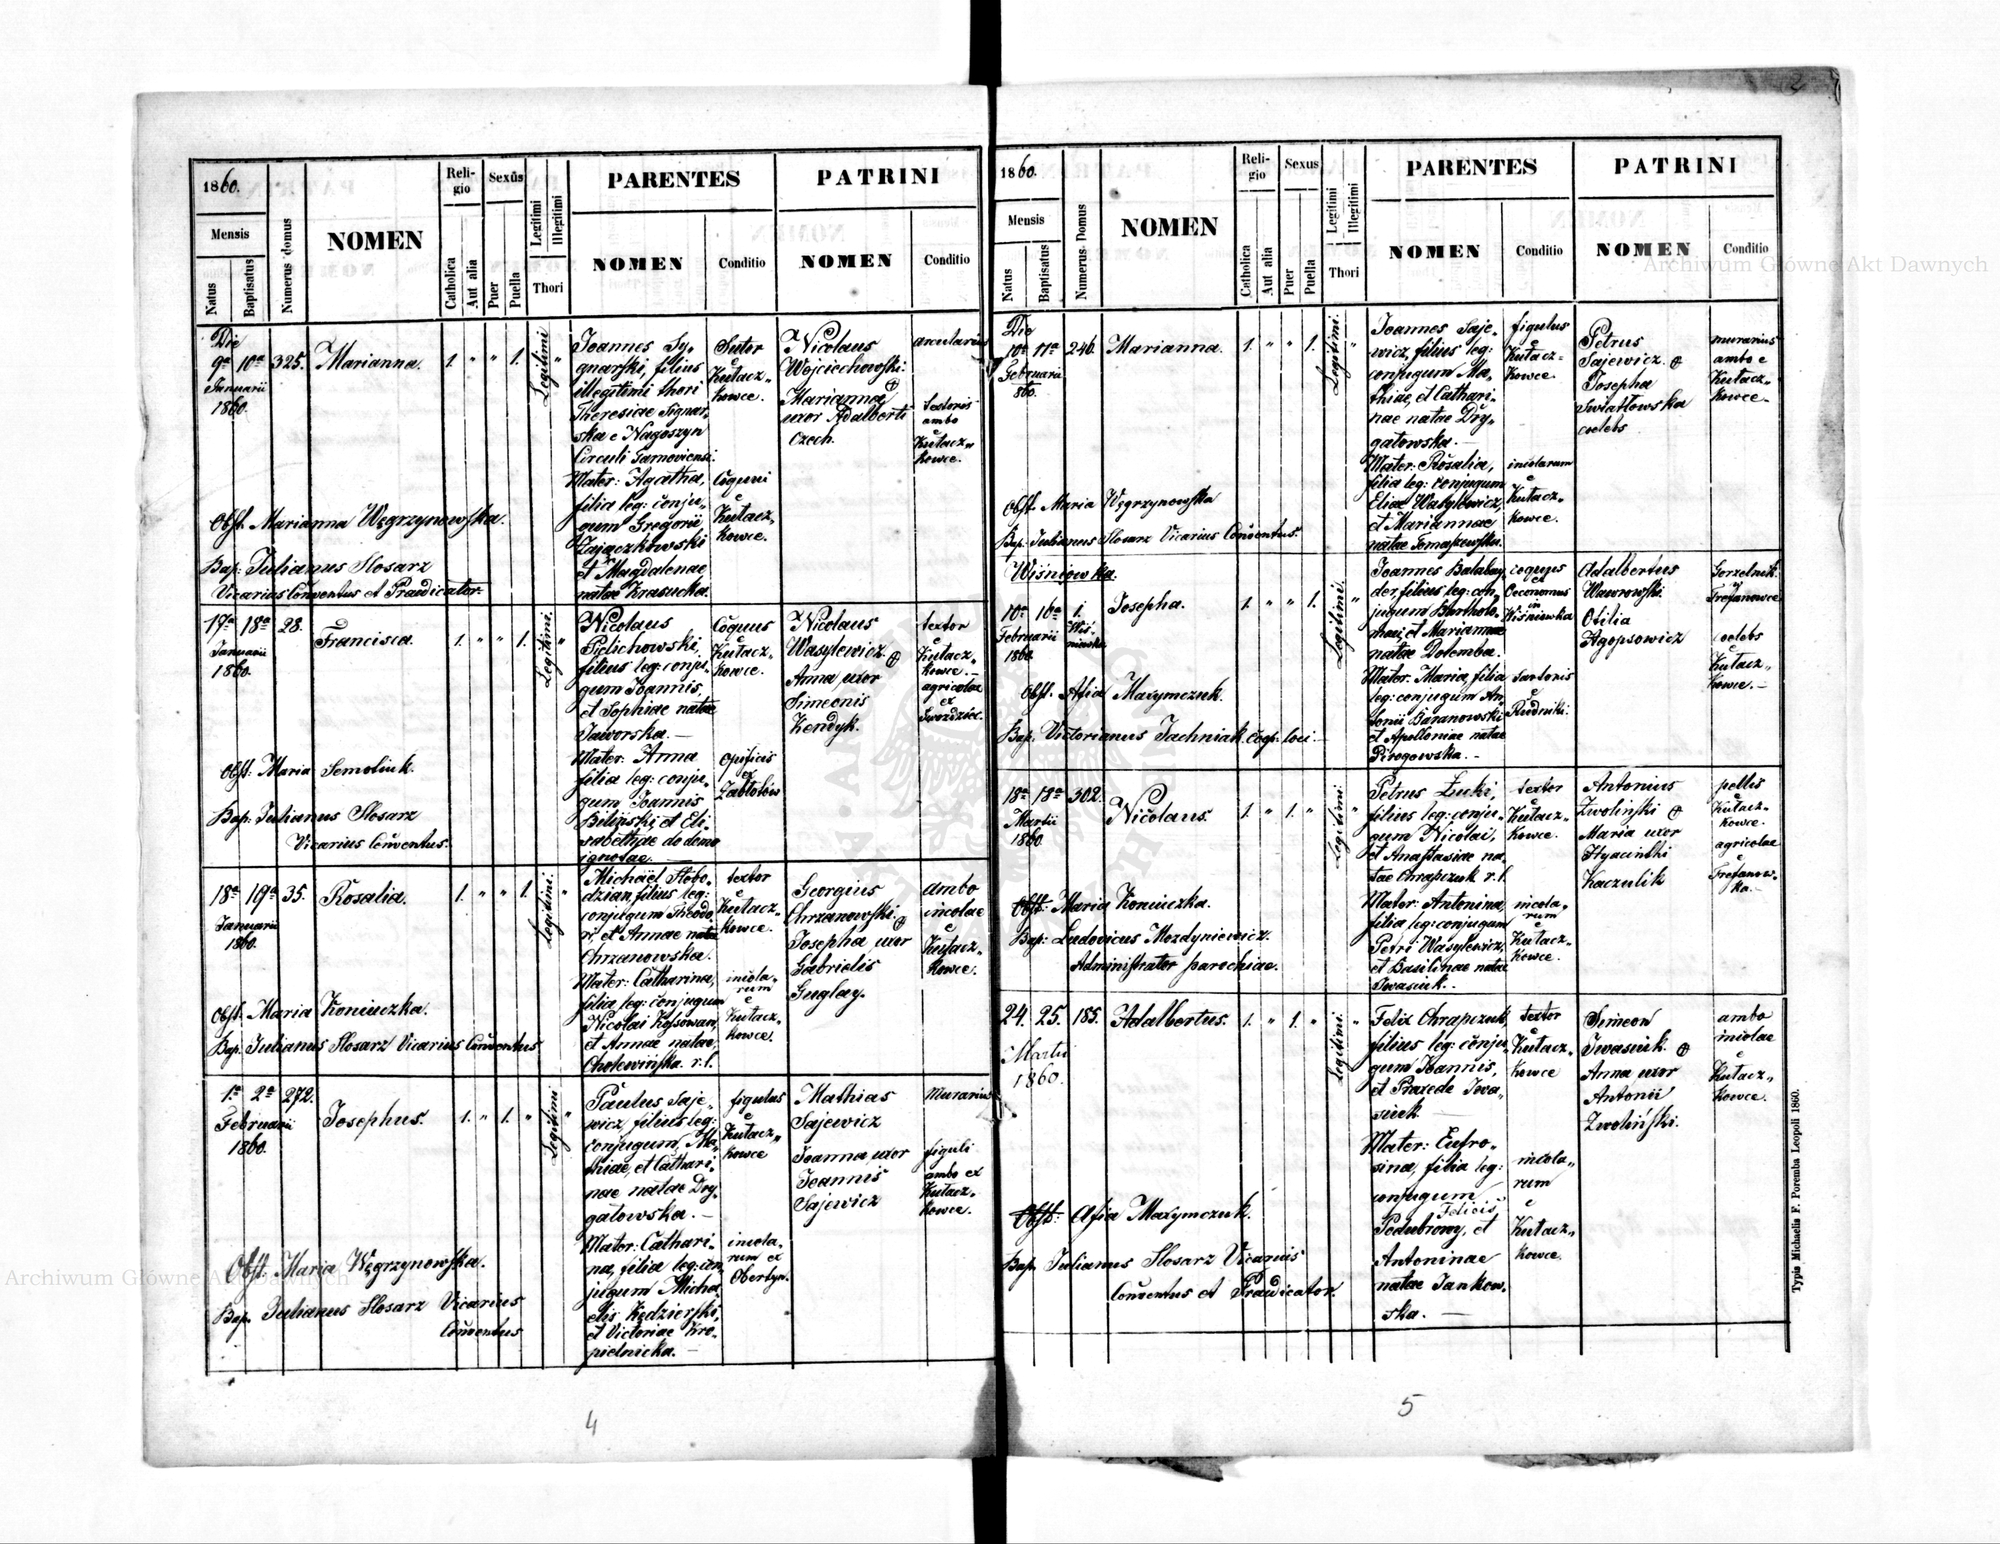 1860.
Mensis
Natus
Baptisatus
Numerus domus
NOMEN
Religio
Catholica
Aut alia
Sexus
Puer
Puella
Legitimi
Illegitimi
Thori
PARENTES
NOMEN
Conditio
PATRINI
NOMEN
Conditio
Die
9a 10a 325. Marianna. 1. " " 1. Legitimi "
Januarii
1860.
Joannes Sy-
gnarski, filius
illegitimi thori
Theresiae Signar-
ska e Nagoszyn
Circuli Tarnoviensi.
Mater: Agatha,
filia leg: conju-
gum Gregorii
Zajaczkowski
et Magdalenae
natae Krasucka.
Sutor
e
Kutacz„
kowce.
Coquui
e
Kutacz„
kowce.
Nicolaus
Wojciechowski.
Marianna
uxor Adalberti
Czech.
arcularius
textoris
ambo
e
Kutacz„
kowce.
Obst. Marianna Węgrzynowska.
Bap: Julianus Slosarz
Vicarius Conventus et Praedicator.
17a 18a 28. Francisca. 1. " " 1. Legitimi. "
Januarii
1860.
Nicolaus
Pielichowski,
filius leg: conju-
gum Joannis,
et Sophiae natae
Jaworska. —
Mater: Anna
filia leg: conju-
gum Joannis
Biliński, et Eli-
sabethae de domo
ignotae. —
Coquus
e
Kutacz„
kowce.
opificis
ex
Zabłotów
Nicolaus
Wasylewicz.
Anna, uxor
Simeonis
Kendyk.
textor
e
Kutacz„
kowce. —
agricolae
ex
Obst: Maria Semoliuk.
Bap: Julianus Slosarz
Vicarius Conventus.
18a 19a 35. Rosalia. 1. " " 1. Legitimi. "
Januarii
1860.
Michaël Słobo-
dzian, filius leg:
conjugum Theodo-
ri, et Annae natae
Chrzanowska.
Mater: Catharina,
filia leg: conjugum
Nicolai Kossowan,
et Annae natae
Cholewińska r. l.
textor
e
Kutacz„
kowce.
incola-
rum
e
Kutacz„
kowce.
Georgius
Chrzanowski.
Josepha uxor
Gabrielis
Guglay.
ambo
incolae
e
Kutacz„
kowce.
Obst. Maria Koniuczka.
Bap: Julianus Slosarz Vicarius Conventus
1a 2a 272. Josephus. 1. " 1. " Legitimi "
Februarii
1860.
Paulus Saje-
wicz, filius leg:
conjugum, Ma-
thiae, et Cathari-
nae natae Dry-
gatowska. —
Mater: Cathari-
na, filia leg: con-
jugum Micha-
elis Kędzierski,
et Victoriae Kro-
pielnicka. —
figulus
e
Kutacz„
kowce
incola-
rum ex
Obertyn.
Mathias
Sajewicz
Joanna, uxor
Joannis
Sajewicz
murarius
figuli
ambo ex
Kutacz„
kowce.
Obst. Maria Węgrzynowska.
Bap. Julianus Slosarz Vicarius
Conventus
4
1860.
Mensis
Natus
Baptisatus
Numerus Domus
NOMEN
Religio
Catholica
Aut alia
Sexus
Puer
Puella
Legitimi
Illegitimi
Thori
PARENTES
NOMEN
Conditio
PATRINI
NOMEN
Conditio
Die
10a 11a 246. Marianna. 1. " " 1. Legitimi. "
Februarii
860.
Joannes Saje-
wicz, filius leg:
conjugum Ma-
thiae, et Cathari-
nae natae Dry-
gatowska. —
Mater: Rosalia,
filia leg: conjugum
Eliae Wasylewicz,
et Mariannae
natae Tomaszewska.
figulus
e
Kutacz-
kowce.
incolarum
e
Kutacz-
kowce.
Petrus
Sajewicz.
Josepha
Swiatłowska
coelebs
murarius
ambo e
Kutacz„
kowce-
Obst. Maria Węgrzynowska
Bap. Julianus Slosarz Vicarius Conventus.
Wiśniowka.
10a 16a 1. Josepha. 1. " " 1. Legitimi. "
Februarii
1860.
Joannes Balaban
der filius leg: con-
jugum Bartholo-
maei, et Marianna
natae Dolemba.
Mater: Maria, filia
leg: conjugum An-
tonii Baranowski
et Apolloniae natae
Pirogowska. —
coquus
et
Oeconomus
in
Wisniowka
sartoris
e
Rudniki.
Adalbertus
Wawrowski.
Otilia
Agopsowicz
Gorzelnik.
e
coelebs
e
Kutacz„
kowce. —
Obst. Afia Maxymczuk.
Bap. Victorianus Jachniak. Coop: loci. —
18a 18a 302. Nicolaus. 1. " 1. " Legitimi. "
Martii
1860.
Petrus Łucki,
filius leg: conju-
gum Nicolai,
et Anastasiae na-
tae Chrapczuk r. l.
Mater: Antonina,
filia leg: conjugum
Petri Wasylewicz,
et Basilinae natae
Iwasiuk. -
textor
e
Kutacz„
kowce.
incola-
rum
e
Kutacz„
kowce.
Antonius
Zwoliński
Maria uxor
Hyacinthi
Kaczulik
pellis
e
Kutacz-
kowce.
agricolae
e
Obst: Maria Koniuczka.
Bap: Ludovicus Mozdyniewicz.
Administrator parochiae.
24. 25. 185. Adalbertus. 1. " 1. " Legitimi. "
Martii
1860.
Felix Chrapczuk,
filius leg: conju-
gum Joannis,
et Praxede Iwa-
siuk —
Mater: Eufro-
sina, filia leg:
conjugum
Felicis,
Poddubrowy, et
Antoninae
natae Jankow-
ska. —
textor
e
Kutacz„
kowce
incola„
rum
e
Kutacz„
kowce.
Simeon
Iwasiuk.
Anna uxor
Antonii
Zwoliński.
ambo
incolae
e
Kutacz„
kowce.
Obst: Afia Maxymczuk.
Bap. Julianus Slosarz Vicarius
Conventus et Praedicator.
5
Typis Michaelis F. Poremba Leopoli 1860.
Archiwum Główne Akt Dawnych
Archiwum Główne Akt Dawnych